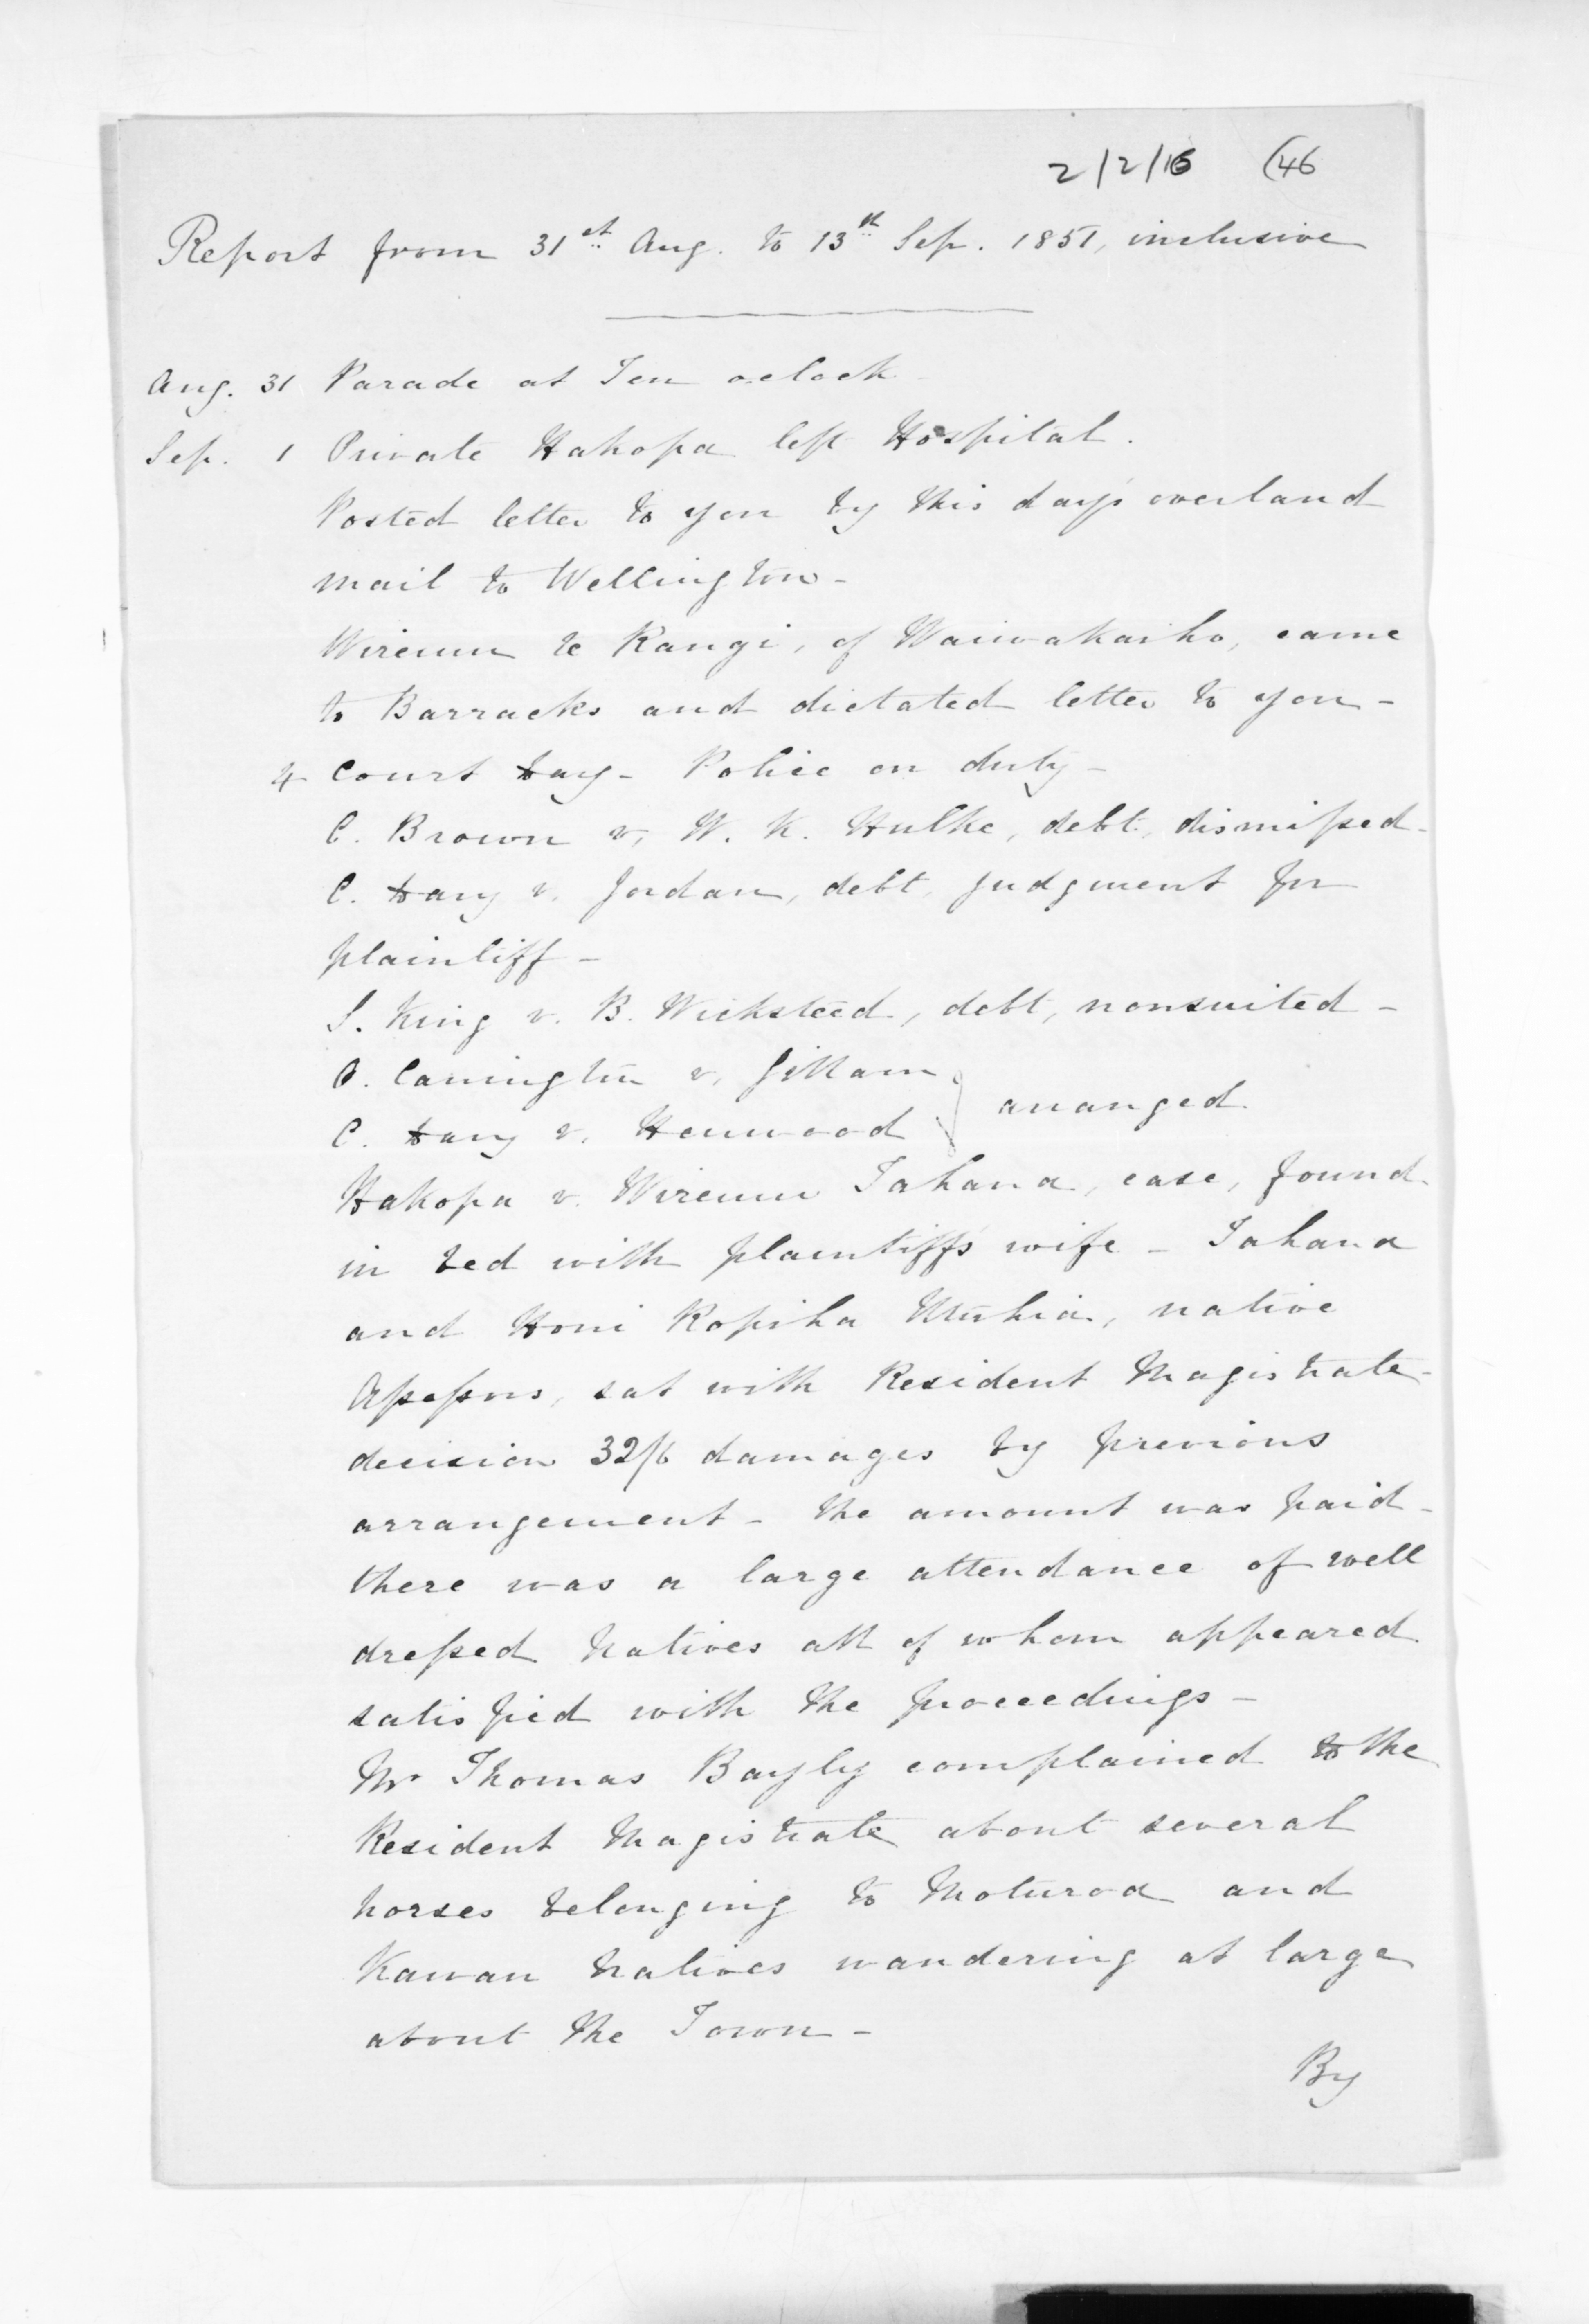 2/2/16 (46
Report from 31st Aug. to 13th Sep. 1851, inclusive
Aug. 31 Parade at Ten oclock
Sep. 1 Private Hakopa left Hospital.
Posted letter to you by this day's overland
mail to Wellington -
Wiremu te Rangi, of Waiwakaiho, came
to Barracks and dictated letter to you -
4 Court Day - Police on duty -
C. Brown v. W. K. Hulke, debt, dismissed -
C. Davy v. Jordan, debt, judgment for
plaintiff -
S. King v. B. Wicksteed, debt, nonsuited -
O. Carrington v. Gillam
C. Davy v. Henwood } arranged
Hakopa v. Wiremu Tahana, case, found
in bed with plaintiff's wife - Tahana
and Honi Ropiha, native
Assessors, sat with Resident Magistrate -
decision 32/6 damages by previous
arrangement - the amount was paid -
there was a large attendance of well
dressed Natives all of whom appeared
satisfied with the proceedings -
Mr Thomas Bayly complained to the
Resident Magistrate about several
horses belonging to Moturoa and
Kawau Natives wandering at large
about the Town -
By